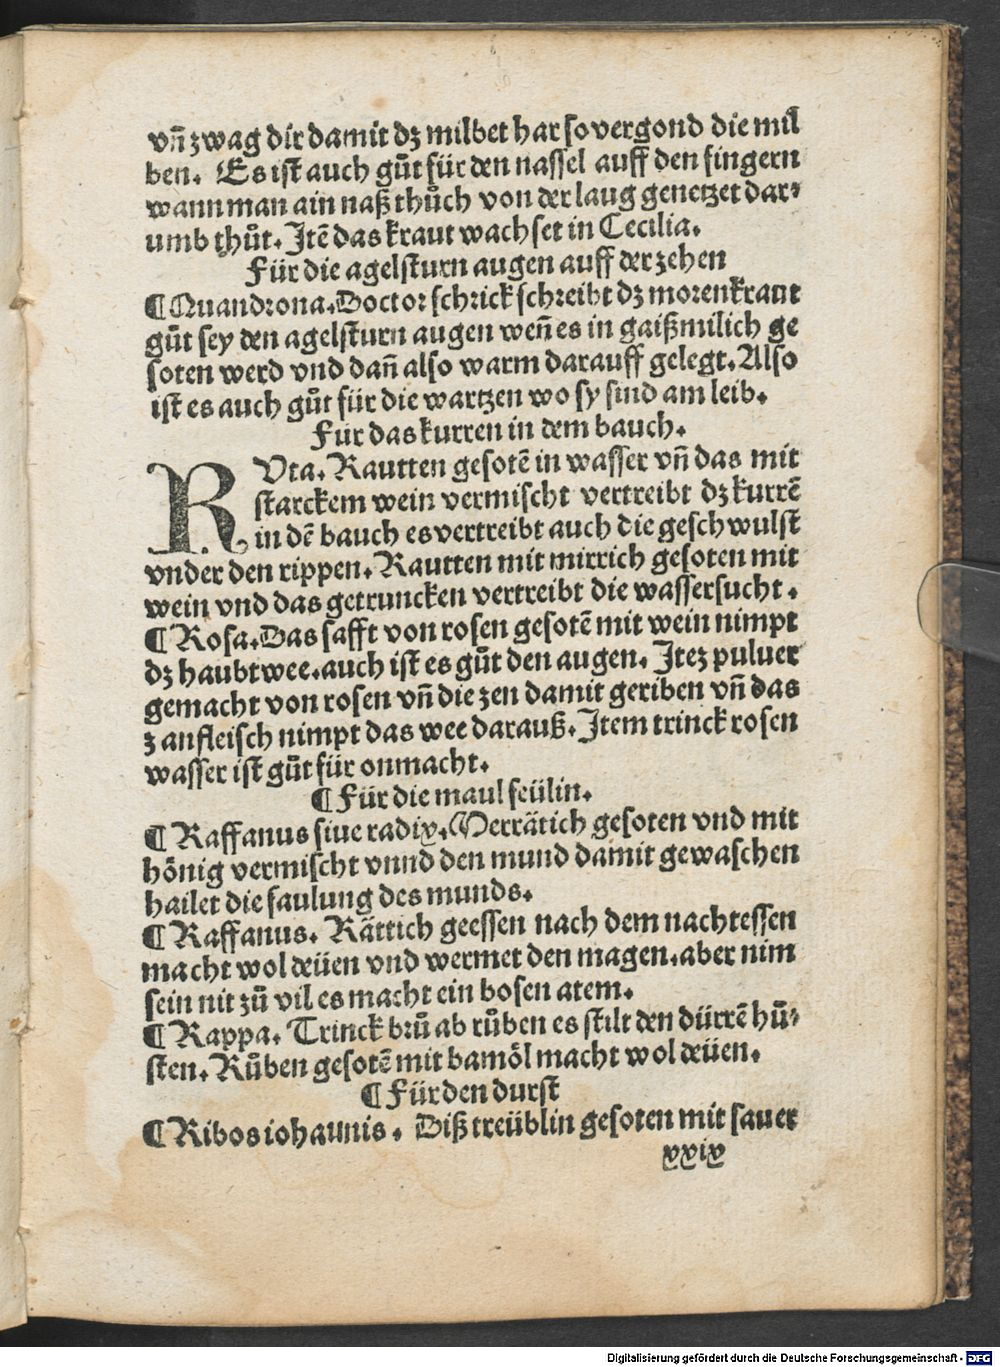 vn̄ zwag dir damit dz milbet har so vergond die mil
ben. Es ist auch gůt für den nassel auff den fingern
wann man ain naß thůch von der laug genetzet dar⸗
umb thůt. Itē das kraut wachset in Cecilia.
Für die agelsturn augen auff der zehen
¶ Quandrona. Doctor schrick schreibt dz morenkraut
gůt sey den agelsturn augen weñ es in gaißmilich ge
soten werd vnd dañ also warm darauff gelegt. Also
ist es auch gůt für die wartzen wo sy sind am leib.
Für das kurren in dem bauch.
RVta. Rautten gesotē in wasser vn̄ das mit
starckem wein vermischt vertreibt dz kurrē
in dē bauch es vertreibt auch die geschwulst
vnder den rippen. Rautten mit mirrich gesoten mit
wein vnd das getruncken vertreibt die wassersucht.
¶ Rosa. Das safft von rosen gesotē mit wein nimpt
dz haubtwee. auch ist es gůt den augen. Itez puluer
gemacht von rosen vn̄ die zen damit geriben vn̄ das
zanfleisch nimpt das wee darauß. Item trinck rosen
wasser ist gůt für onmacht.
¶ Für die maul feülin.
¶ Raffanus siue radix. Merrätich gesoten vnd mit
hönig vermischt vnnd den mund damit gewaschen
hailet die faulung des munds.
¶ Raffanus. Rättich geessen nach dem nachtessen
macht wol deüen vnd wermet den magen. aber nim
sein nit zů vil es macht ein bosen atem.
¶ Rappa. Trinck brů ab růben es stilt den dürrē hů⸗
sten. Růben gesotē mit bamöl macht wol deüen.
¶ Für den durst
¶ Ribos iohannis. Diß treüblin gesoten mit sauer
xxix
Digitalisierung gefördert durch die Deutsche Forschungsgemeinschaft - DFG